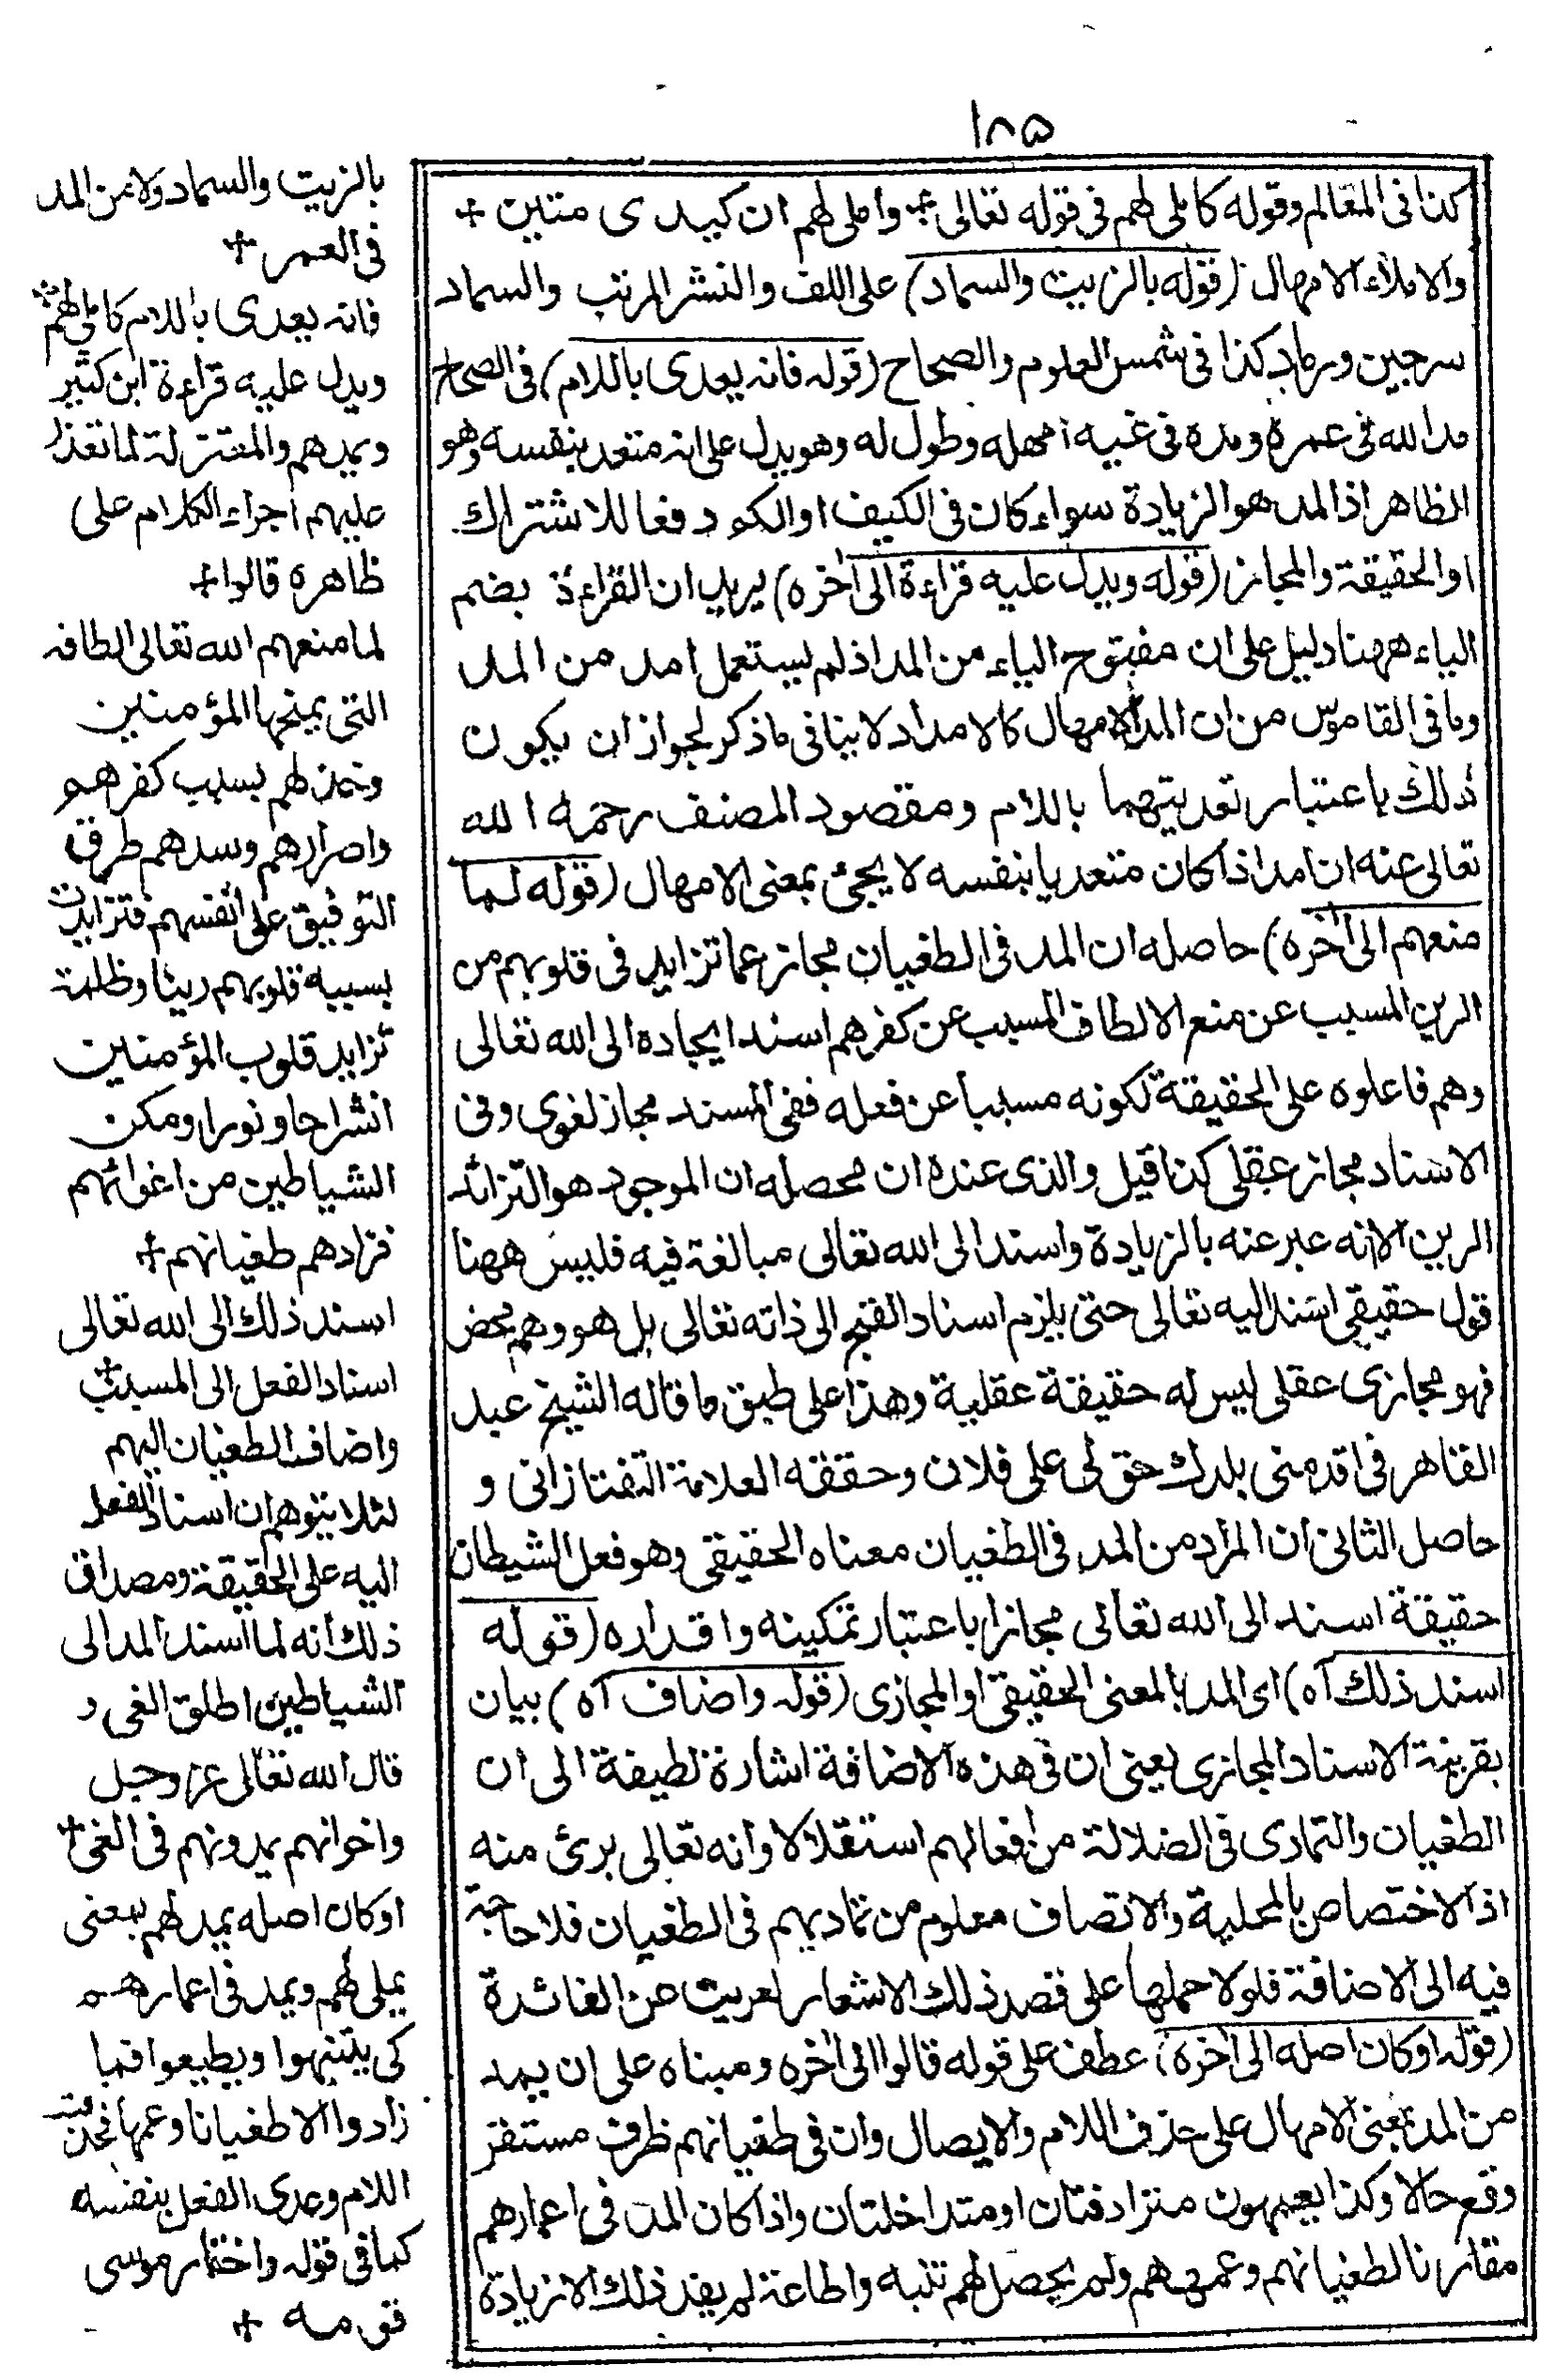 ١٨٥
كذا فى المعالم وقوله كاملى لهم فى قوله تعالى واملى لهم ان كيدى متين +
والاملاء الامهال (قوله بالزيت والسماد) على اللف والنشر المرتب والسماد
سرجين ورماد كذا فى شمس العلوم والصحاح (قوله فانه يعدى باللام) فى الصحاح
مد الله فى عمره ومده فى غيه امهله وطول له وهو يدل على انه متعد بنفسه وهو
الظاهر اذ المد هو الزيادة سواء كان فى الكيف او الكم دفعا للاشتراك
او الحقيقة والمجاز (قوله ويدل عليه قراءة الى اخره) يريد ان القراءة بضم
الياء ههنا دليل على ان مفتوح الياء من المد اذ لم يستعمل امد من المد
وما فى القاموس من ان المد الامهال كالامداد لا ينافى ما ذكر لجواز ان يكون
ذلك باعتبار تعديتهما باللام ومقصود المصنف رحمه الله
تعالى عنه ان مد اذا كان متعديا بنفسه لا يجئ بمعنى الامهال (قوله لما
منعهم الى اخره) حاصله ان المد فى الطغيان مجاز عما تزايد فى قلوبهم من
الرين المسبب عن منع الالطاف المسبب عن كفرهم اسند ايجاده الى الله تعالى
وهم فاعلوه على الحقيقة لكونه مسببا عن فعله ففى المسند مجاز لغوى وفى
الاسناد مجاز عقلى كذا قيل والذى عنده ان محصله ان الموجود هو التزائد
الرين الا انه عبر عنه بالزيادة واسند الى الله تعالى مبالغة فيه فليس ههنا
قول حقيقى اسند اليه تعالى حتى يلزم اسناد القبيح الى ذاته تعالى بل هو وهم محض
فهو مجازى عقلى ليس له حقيقة عقلية وهذا على طبق ما قاله الشيخ عبد
القاهر فى اقدمنى بلدك حق لى على فلان وحققه العلامة التفتازانى و
حاصل الثانى ان المراد من المد فى الطغيان معناه الحقيقى وهو فعل الشيطان
حقيقة اسند الى الله تعالى مجازا باعتبار تمكينه واقداره (قوله
اسند ذلك آه) اى المد بالمعنى الحقيقى او المجازى (قوله واضاف آه) بيان
بقرينة الاسناد المجازى يعنى ان فى هذه الاضافة اشارة لطيفة الى ان
الطغيان والتمادى فى الضلالة من افعالهم استقلالا وانه تعالى برئ منه
اذ الاختصاص بالمحلية والاتصاف معلوم من تماديهم فى الطغيان فلا حاجة
فيه الى الاضافة فلولا حملها على قصد ذلك الاشعار لعريت عن الفائدة
(قوله او كان اصله الى اخره) عطف على قوله قالوا الى اخره ومبناه على ان يمد
من المد بمعنى الامهال على حذف اللام والايصال وان فى طغيانهم ظرف مستقر
وقع حالا وكذا يعمهون مترادفتان او متداخلتان واذا كان المد فى اعمارهم
مقارنا لطغيانهم وعمههم ولم يحصل لهم تنبه واطاعة لم يفد ذلك الا زيادة
بالزيت والسماد ولا من المد
فى العمر +
فانه يعدى باللام كاملى لهم
ويدل عليه قراءة ابن كثير
ويمدهم والمعتزلة لما تعذر
عليهم اجراء الكلام على
ظاهره قالوا +
لما منعهم الله تعالى الطافه
التى يمنحها المؤمنين
وخذلهم بسبب كفرهم
واصرارهم وسدهم طرق
التوفيق على انفسهم فتزايدت
بسببه قلوبهم رينا وظلمة
تزايد قلوب المؤمنين
انشراحا ونورا ومكن
الشياطين من اغوائهم
فزادهم طغيانهم +
اسند ذلك الى الله تعالى
اسناد الفعل الى المسبب
واضاف الطغيان اليهم
لئلا يتوهم ان اسناد الفعل
اليه على الحقيقة ومصداق
ذلك انه لما اسند المد الى
الشياطين اطلق الغى و
قال الله تعالى عز وجل
واخوانهم يمدونهم فى الغى +
او كان اصله يمد لهم بمعنى
يملى لهم ويمد فى اعمارهم
كى يتنبهوا ويطيعوا فما
زادوا الا طغيانا وعمها فحذفت
اللام وعدى الفعل بنفسه
كما فى قوله واختار موسى
قومه +